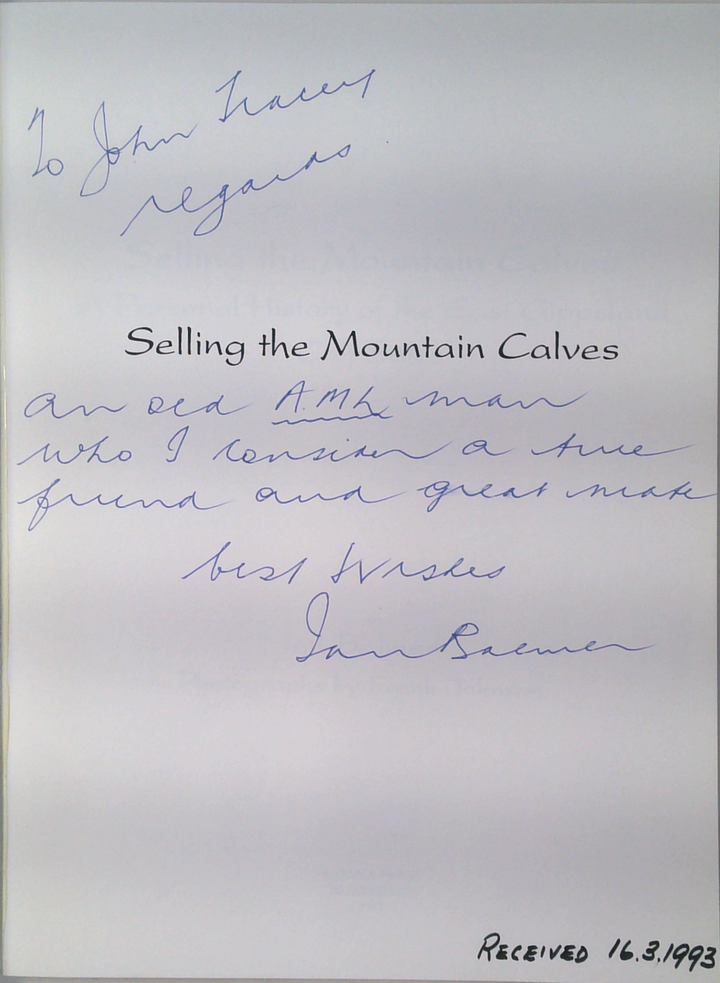 To John Tracey
regards
Selling the Mountain Calves
an old A.M.L. man
who I consider a true
friend and great mate
best Wishes
Ian
RECEIVED 16.3.1993